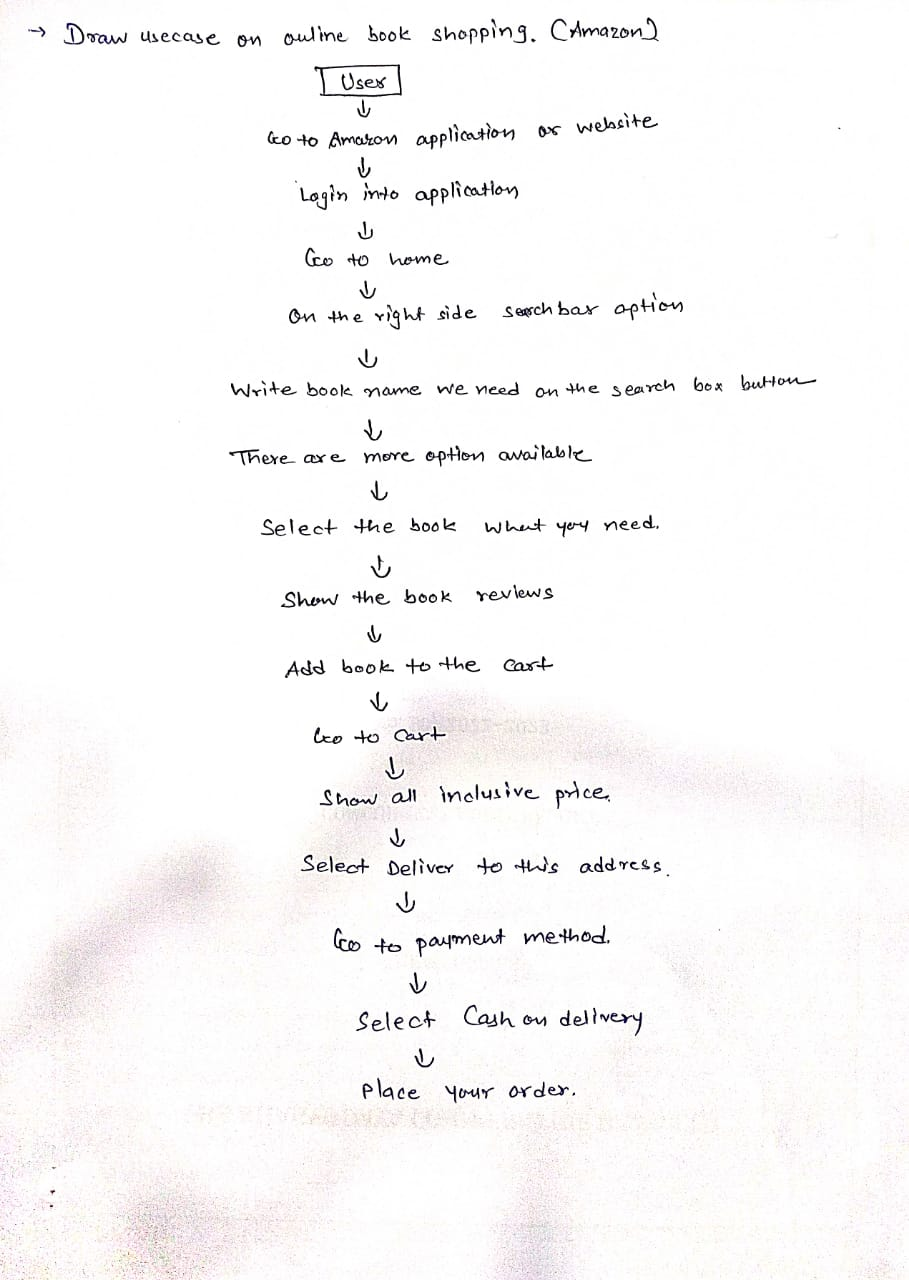 → Draw usecase on online book shopping. (Amazon)
User
↓
Go to Amazon application or website
↓
Login into application
↓
Go to home
↓
On the right side search bar option
↓
Write book name we need on the search box button
↓
There are more option available
↓
Select the book what you need.
↓
Show the book reviews
↓
Add book to the cart
↓
Go to cart
↓
Show all inclusive price.
↓
Select Deliver to this address.
↓
Go to payment method.
↓
Select Cash on delivery
↓
Place your order.